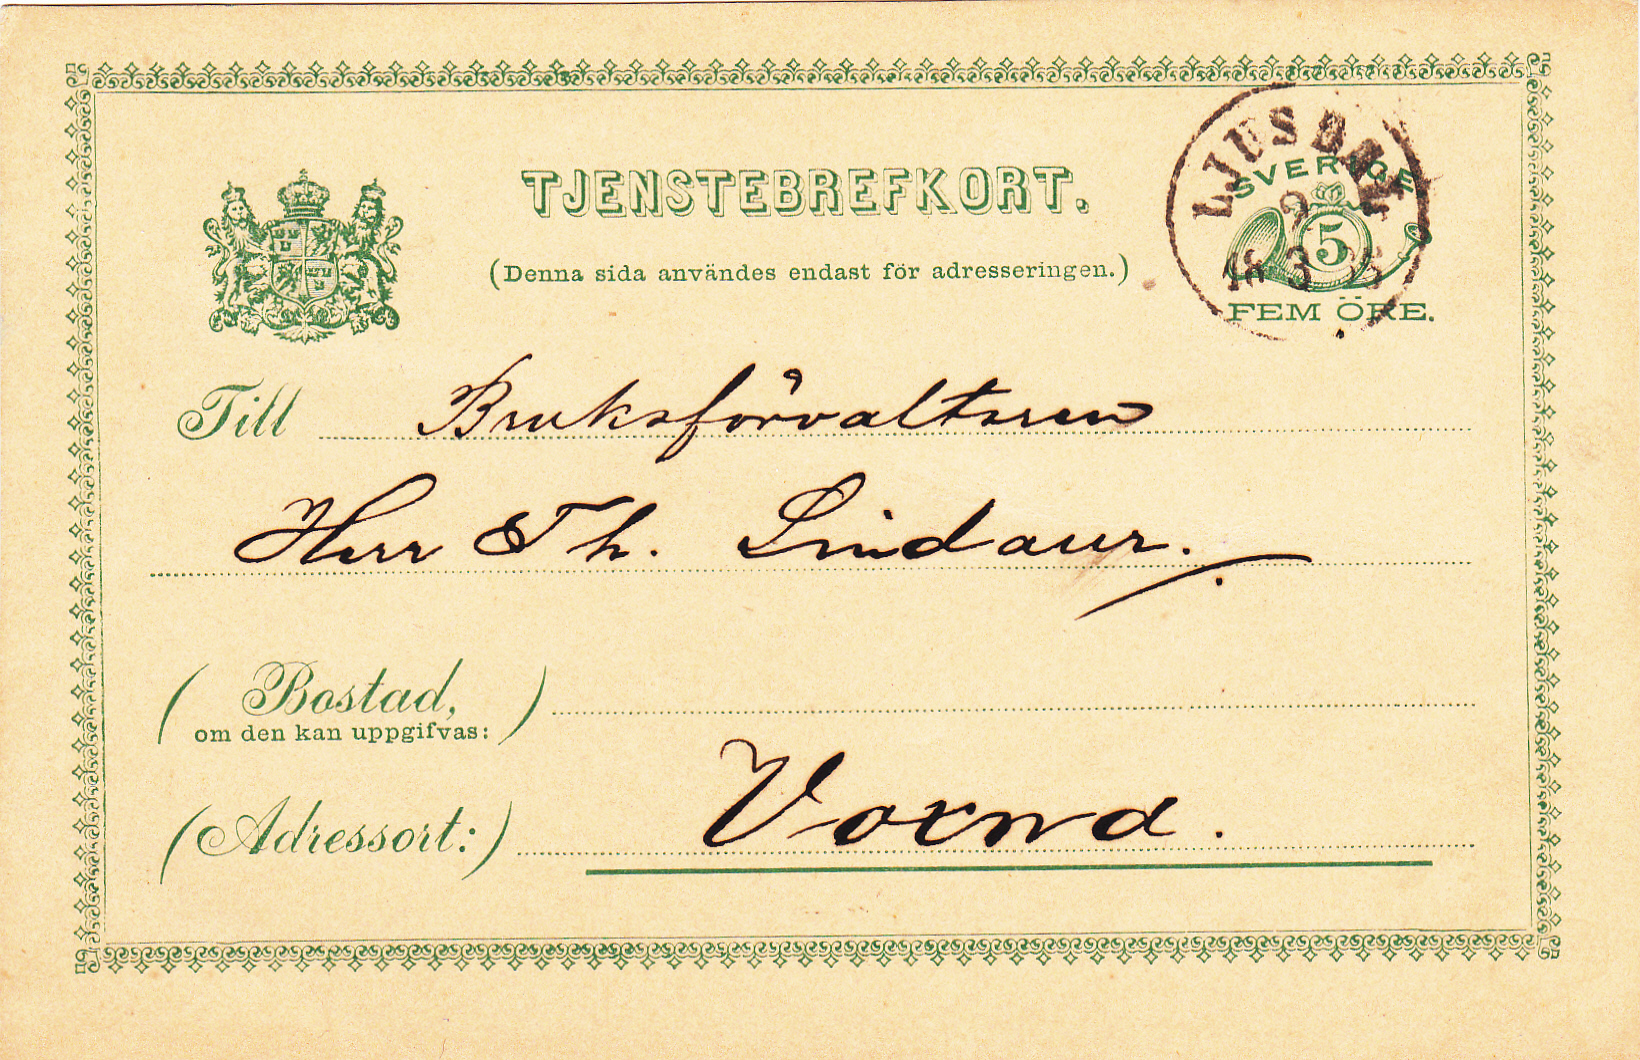 TJENSTEBREFKORT.
(Denna sida användes endast för adresseringen.)
LJUSDAL
SVERIGE
5
FEM ÖRE.
Till Bruksförvaltaren
Herr Th. Lindaur.
(Bostad,
om den kan uppgifvas:)
(Adressort:) Voxna.